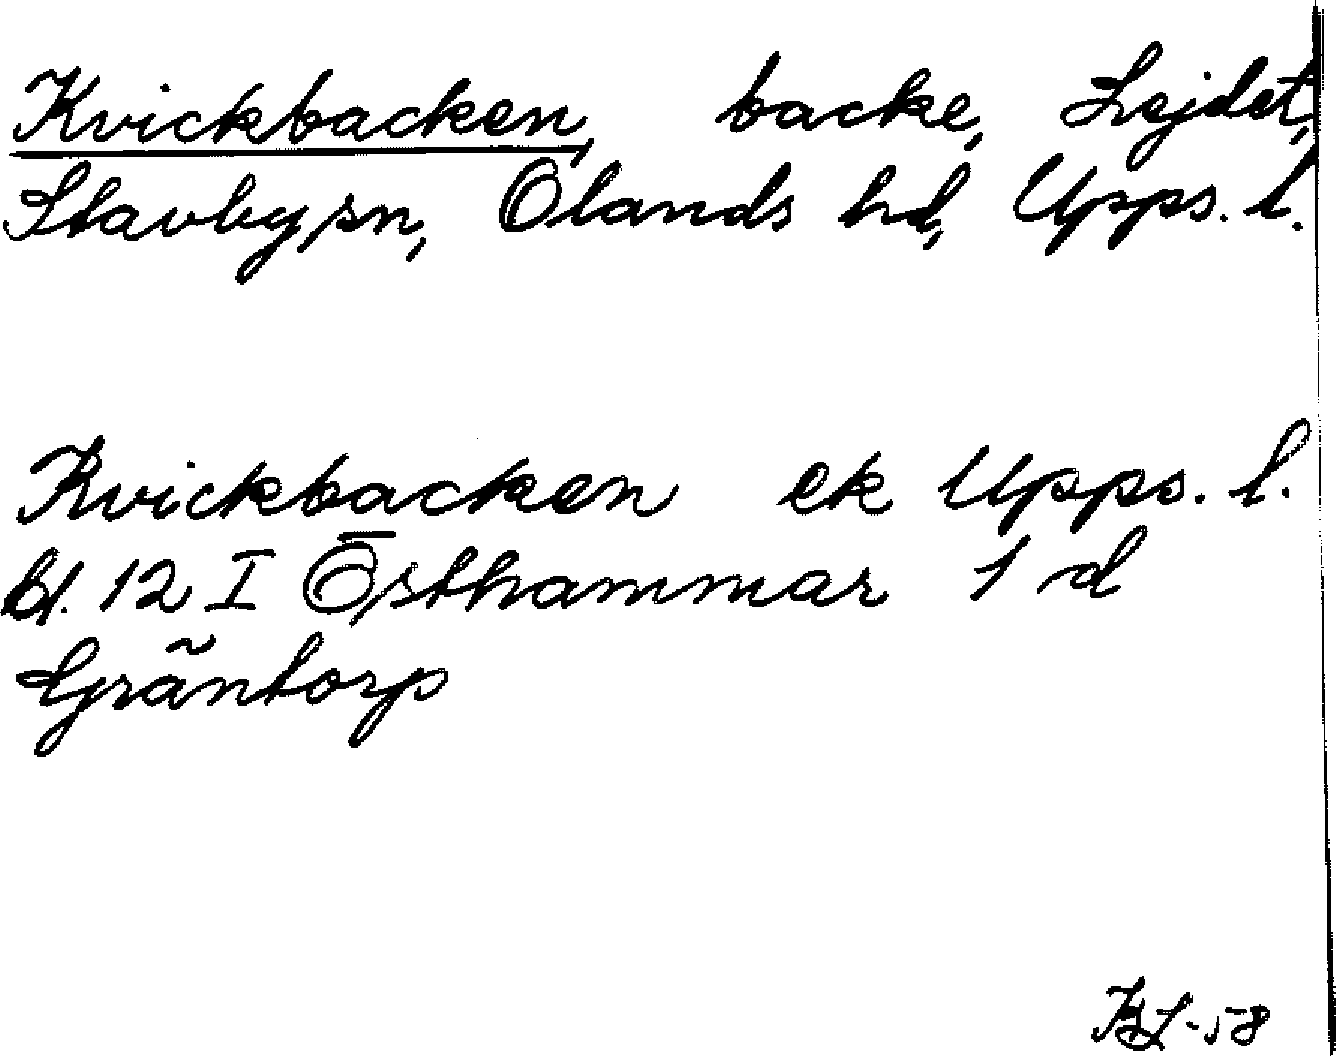 Kvickbacken, backe, Lejdet,
Stavby sn, Olands hd, Upps. l.
Kvickbacken ek Upps. l.
bl. 12 I Östhammar 1 d
Gräntorp
-58